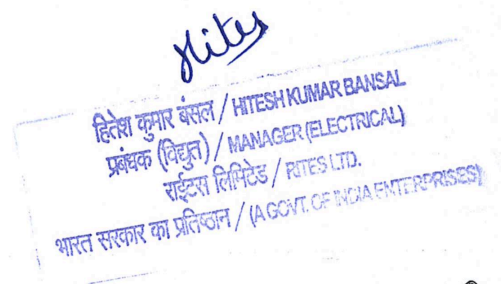 Hitesh
हितेश कुमार बंसल / HITESH KUMAR BANSAL
प्रबंधक (विद्युत) / MANAGER (ELECTRICAL)
राईटस लिमिटेड / RITES LTD.
भारत सरकार का प्रतिष्ठान / (A GOVT. OF INDIA ENTERPRISES)